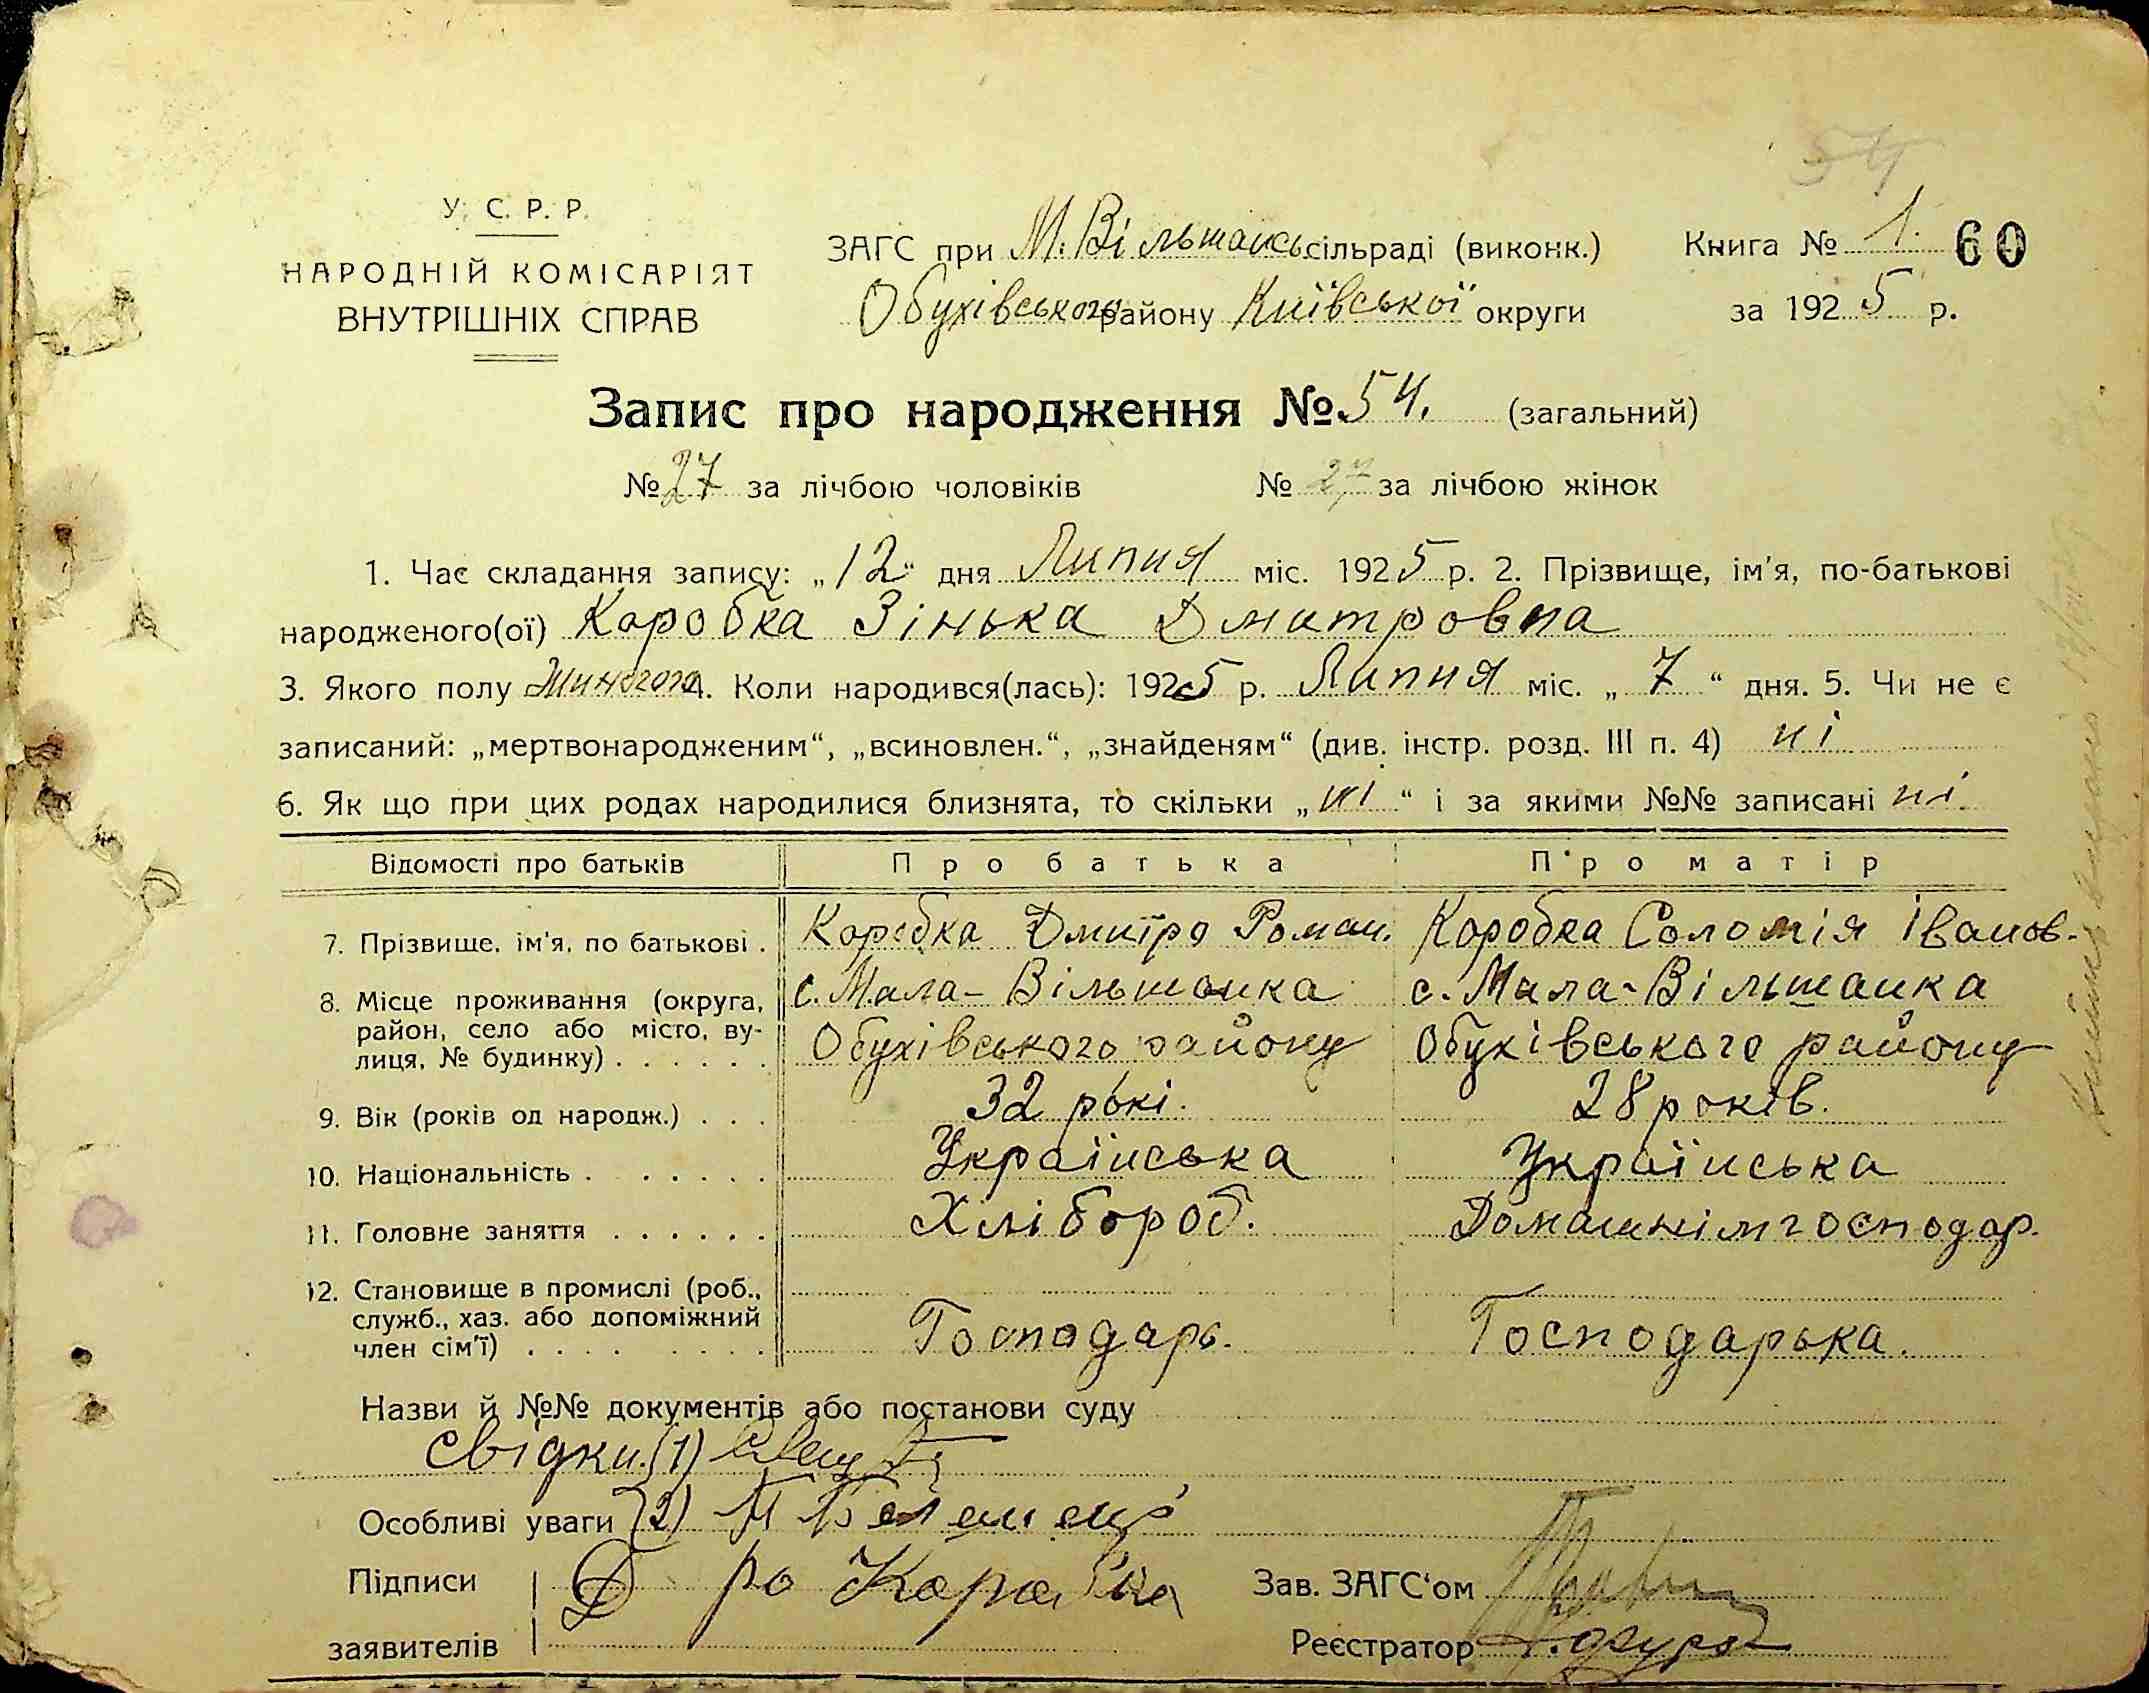 54
У. С. Р. Р.
НАРОДНІЙ КОМІСАРІЯТ
ВНУТРІШНІХ СПРАВ
ЗАГС при М. Вільшансь. сільраді (виконк.)
Обухівського району Київської округи
Книга № 1. 60
за 1925 р.
Запис про народження № 54. (загальний)
№ 27 за лічбою чоловіків № 27 за лічбою жінок
1. Час складання запису: „12“ дня Липня міс. 1925 р. 2. Прізвище, ім'я, по-батькові
народженого(ої) Коробка Зінька Дмитровна
3. Якого полу Жиного 4. Коли народився(лась): 1925 р. Липня міс. „7“ дня. 5. Чи не є
записаний: „мертвонародженим“, „всиновлен.“, „знайденям“ (див. інстр. розд. III п. 4) ні
6. Як що при цих родах народилися близнята, то скільки „ні“ і за якими №№ записані ні.
Відомості про батьків Про батька Про матір
7. Прізвище, ім'я, по батькові . Коробка Дмитро Роман. Коробка Соломія Іванов.
8. Місце проживання (округа, с. Мала-Вільшанка с. Мала-Вільшанка
район, село або місто, ву-
лиця, № будинку) . . . . . . Обухівського району Обухівського району
9. Вік (років од народж.) . . . 32 рокі. 28 років.
10. Національність . . . . . . Українська Українська
11. Головне заняття . . . . . . Хлібороб. Домашнім господар.
12. Становище в промислі (роб.,
служб., хаз. або допоміжний
член сім'ї) . . . . . . . . Господарь. Господарька.
Назви й №№ документів або постанови суду
Свідки. (1)
Особливі уваги (2)
Підписи Д ро Коробка Зав. ЗАГС'ом
заявителів Реєстратор